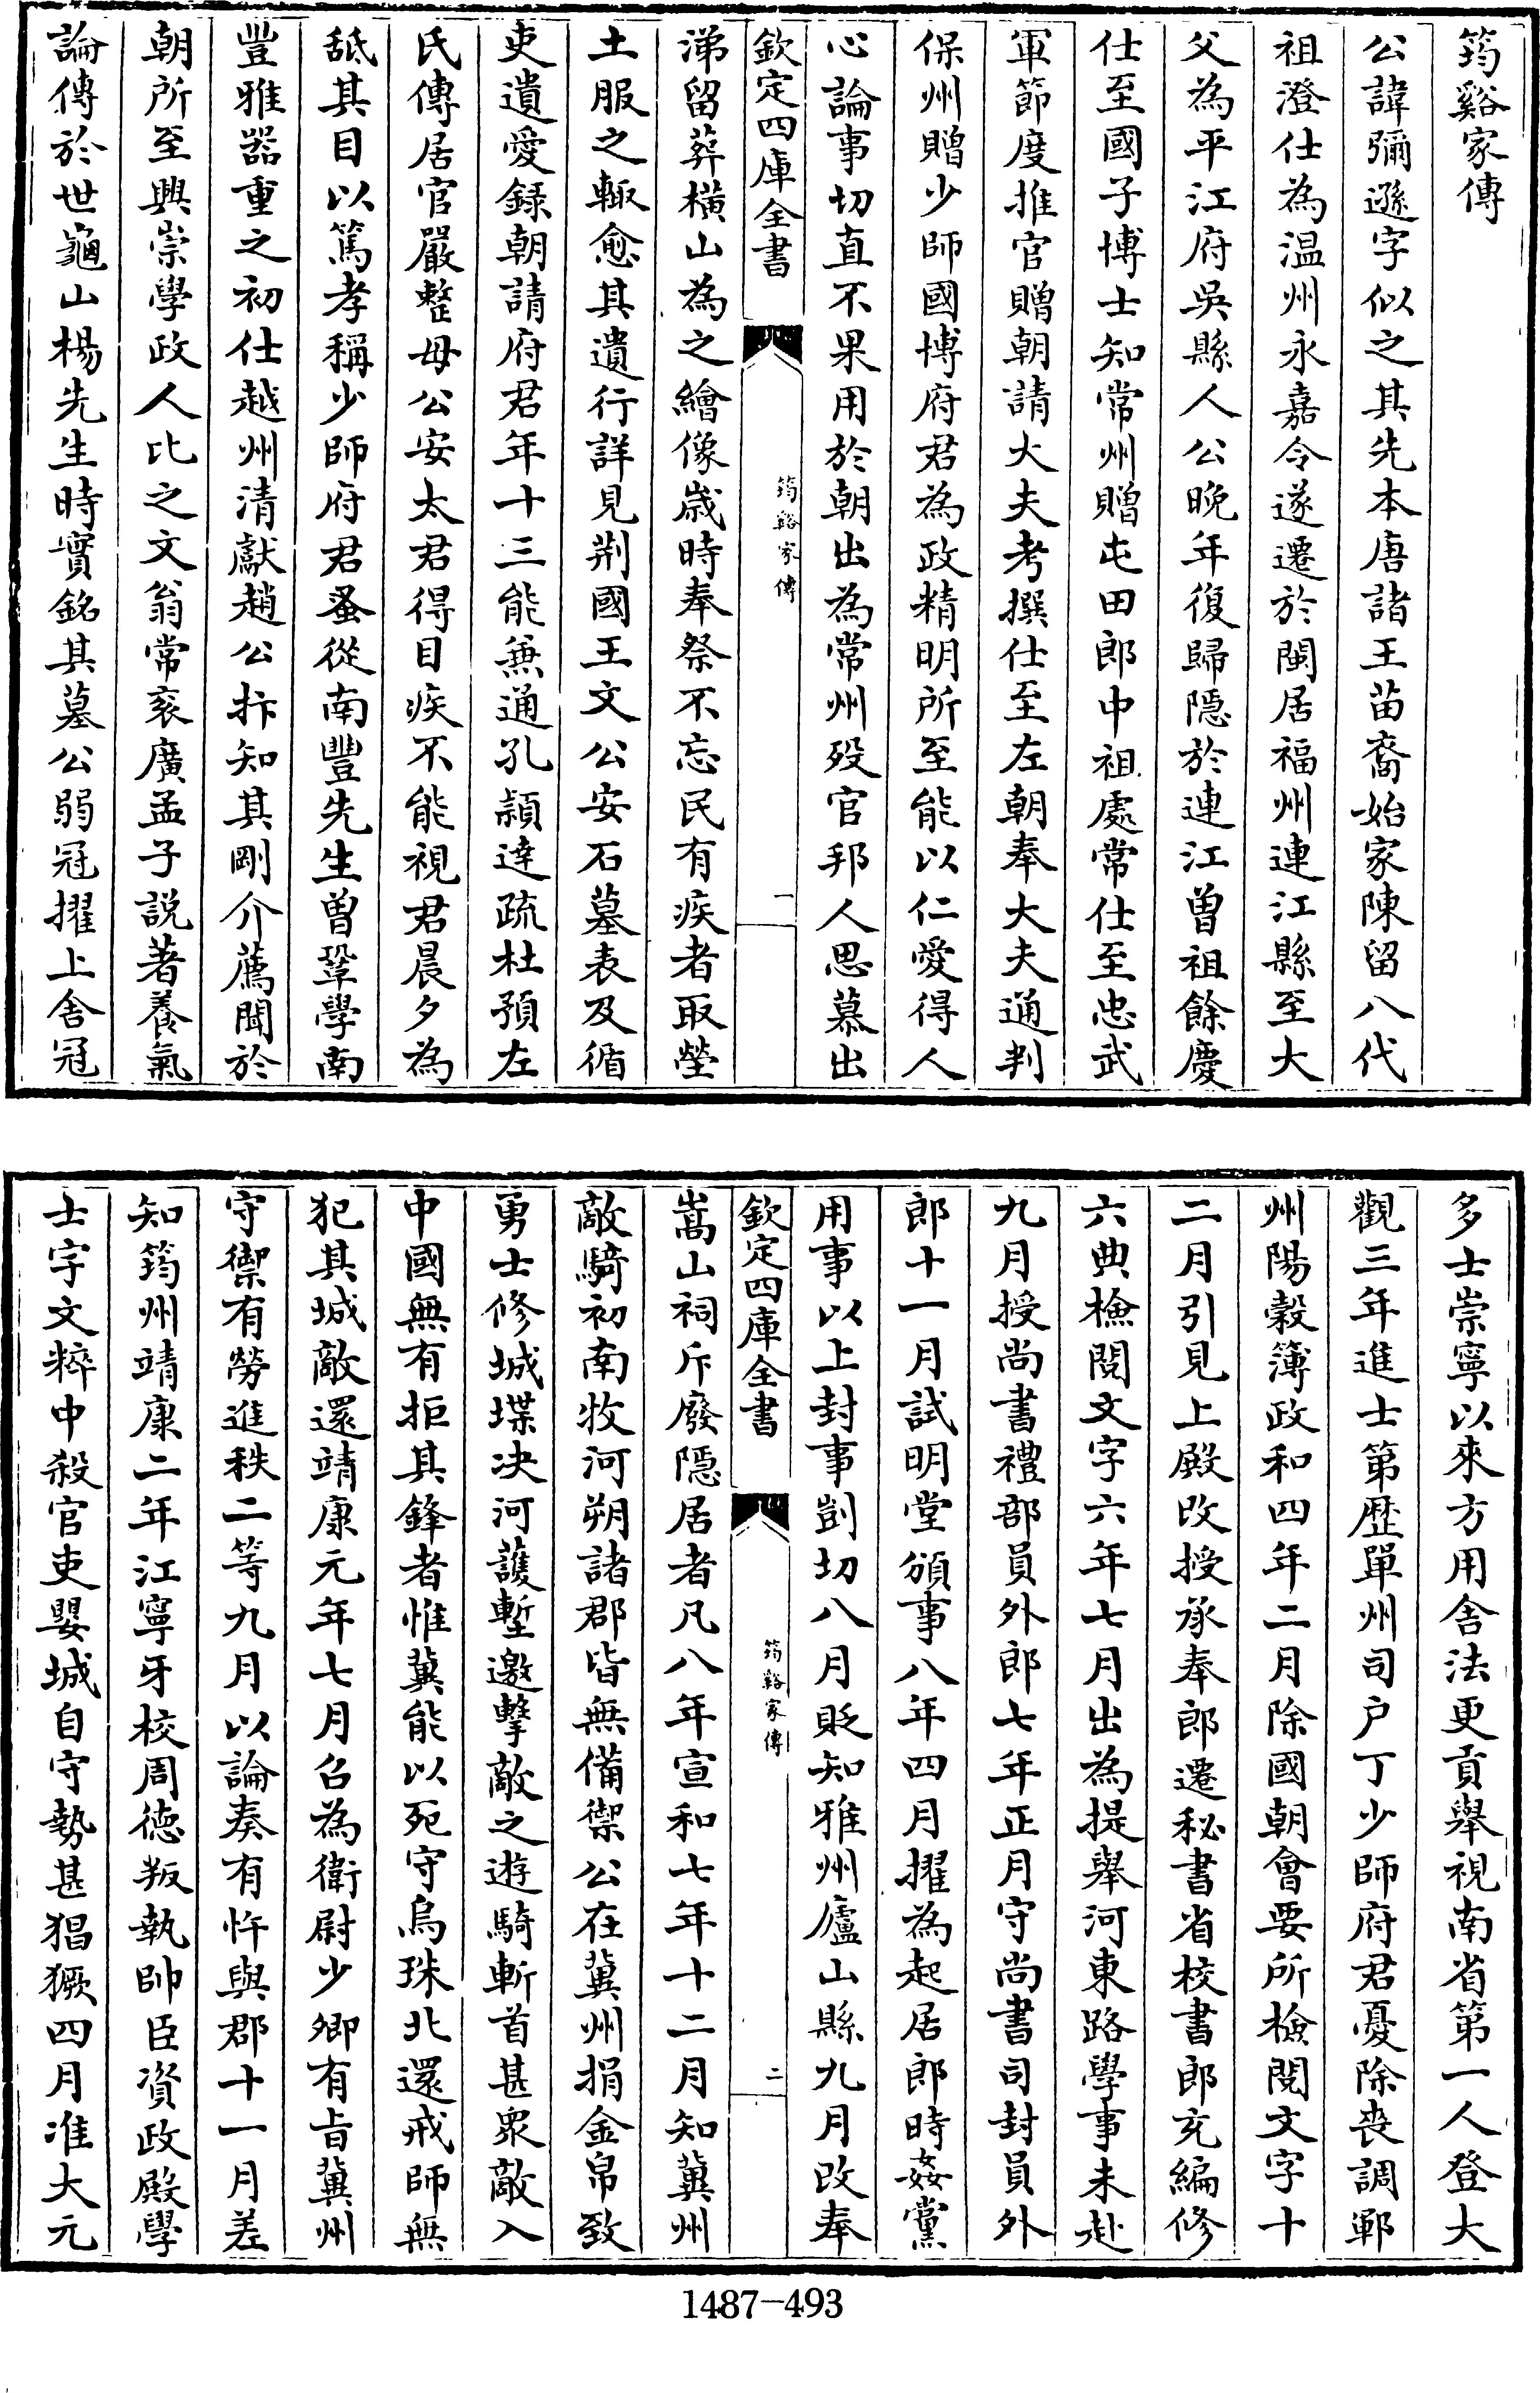 筠谿家傳
公諱彌遜字似之其先本唐諸王苗裔始家陳留八代
祖澄仕為温州永嘉令遂遷於閩居福州連江縣至大
父為平江府吳縣人公晚年復歸隱於連江曽祖餘慶
仕至國子博士知常州贈屯田郎中祖處常仕至忠武
軍節度推官贈朝請大夫考撰仕至左朝奉大夫通判
保州贈少師國博府君為政精明所至能以仁愛得人
心論事切直不果用於朝出為常州歿官邦人思慕出
欽定四庫全書
筠谿家傳
一
涕留葬橫山為之繪像歲時奉祭不忘民有疾者取塋
土服之輙愈其遺行詳見荆國王文公安石墓表及循
吏遺愛錄朝請府君年十三能兼通孔頴達疏杜預左
氏傳居官嚴整母公安太君得目疾不能視君晨夕為
舐其目以篤孝稱少師府君蚤從南豐先生曽鞏學南
豐雅器重之初仕越州清獻趙公抃知其剛介薦聞於
朝所至興崇學政人比之文翁常衮廣孟子說著養氣
論傳於世龜山楊先生時實銘其墓公弱冠擢上舍冠
多士崇寧以來方用舍法更貢舉視南省第一人登大
觀三年進士第歷單州司户丁少師府君憂除喪調鄆
州陽穀簿政和四年二月除國朝會要所檢閱文字十
二月引見上殿改授承奉郎遷秘書省校書郎充編修
六典檢閱文字六年七月出為提舉河東路學事未赴
九月授尚書禮部員外郎七年正月守尚書司封員外
郎十一月試明堂頒事八年四月擢為起居郎時姦黨
用事以上封事剴切八月貶知雅州廬山縣九月改奉
欽定四庫全書
筠谿家傳
二
嵩山祠斥廢隱居者凡八年宣和七年十二月知冀州
敵騎初南牧河朔諸郡皆無備禦公在冀州捐金帛致
勇士修城堞决河護塹邀擊敵之遊騎斬首甚衆敵入
中國無有拒其鋒者惟冀能以死守烏珠北還戒師無
犯其城敵還靖康元年七月召為衛尉少卿有旨冀州
守禦有勞進秩二等九月以論奏有忤與郡十一月差
知筠州靖康二年江寧牙校周德叛執帥臣資政殿學
士宇文粹中殺官吏嬰城自守勢甚猖獗四月准大元
1487—493